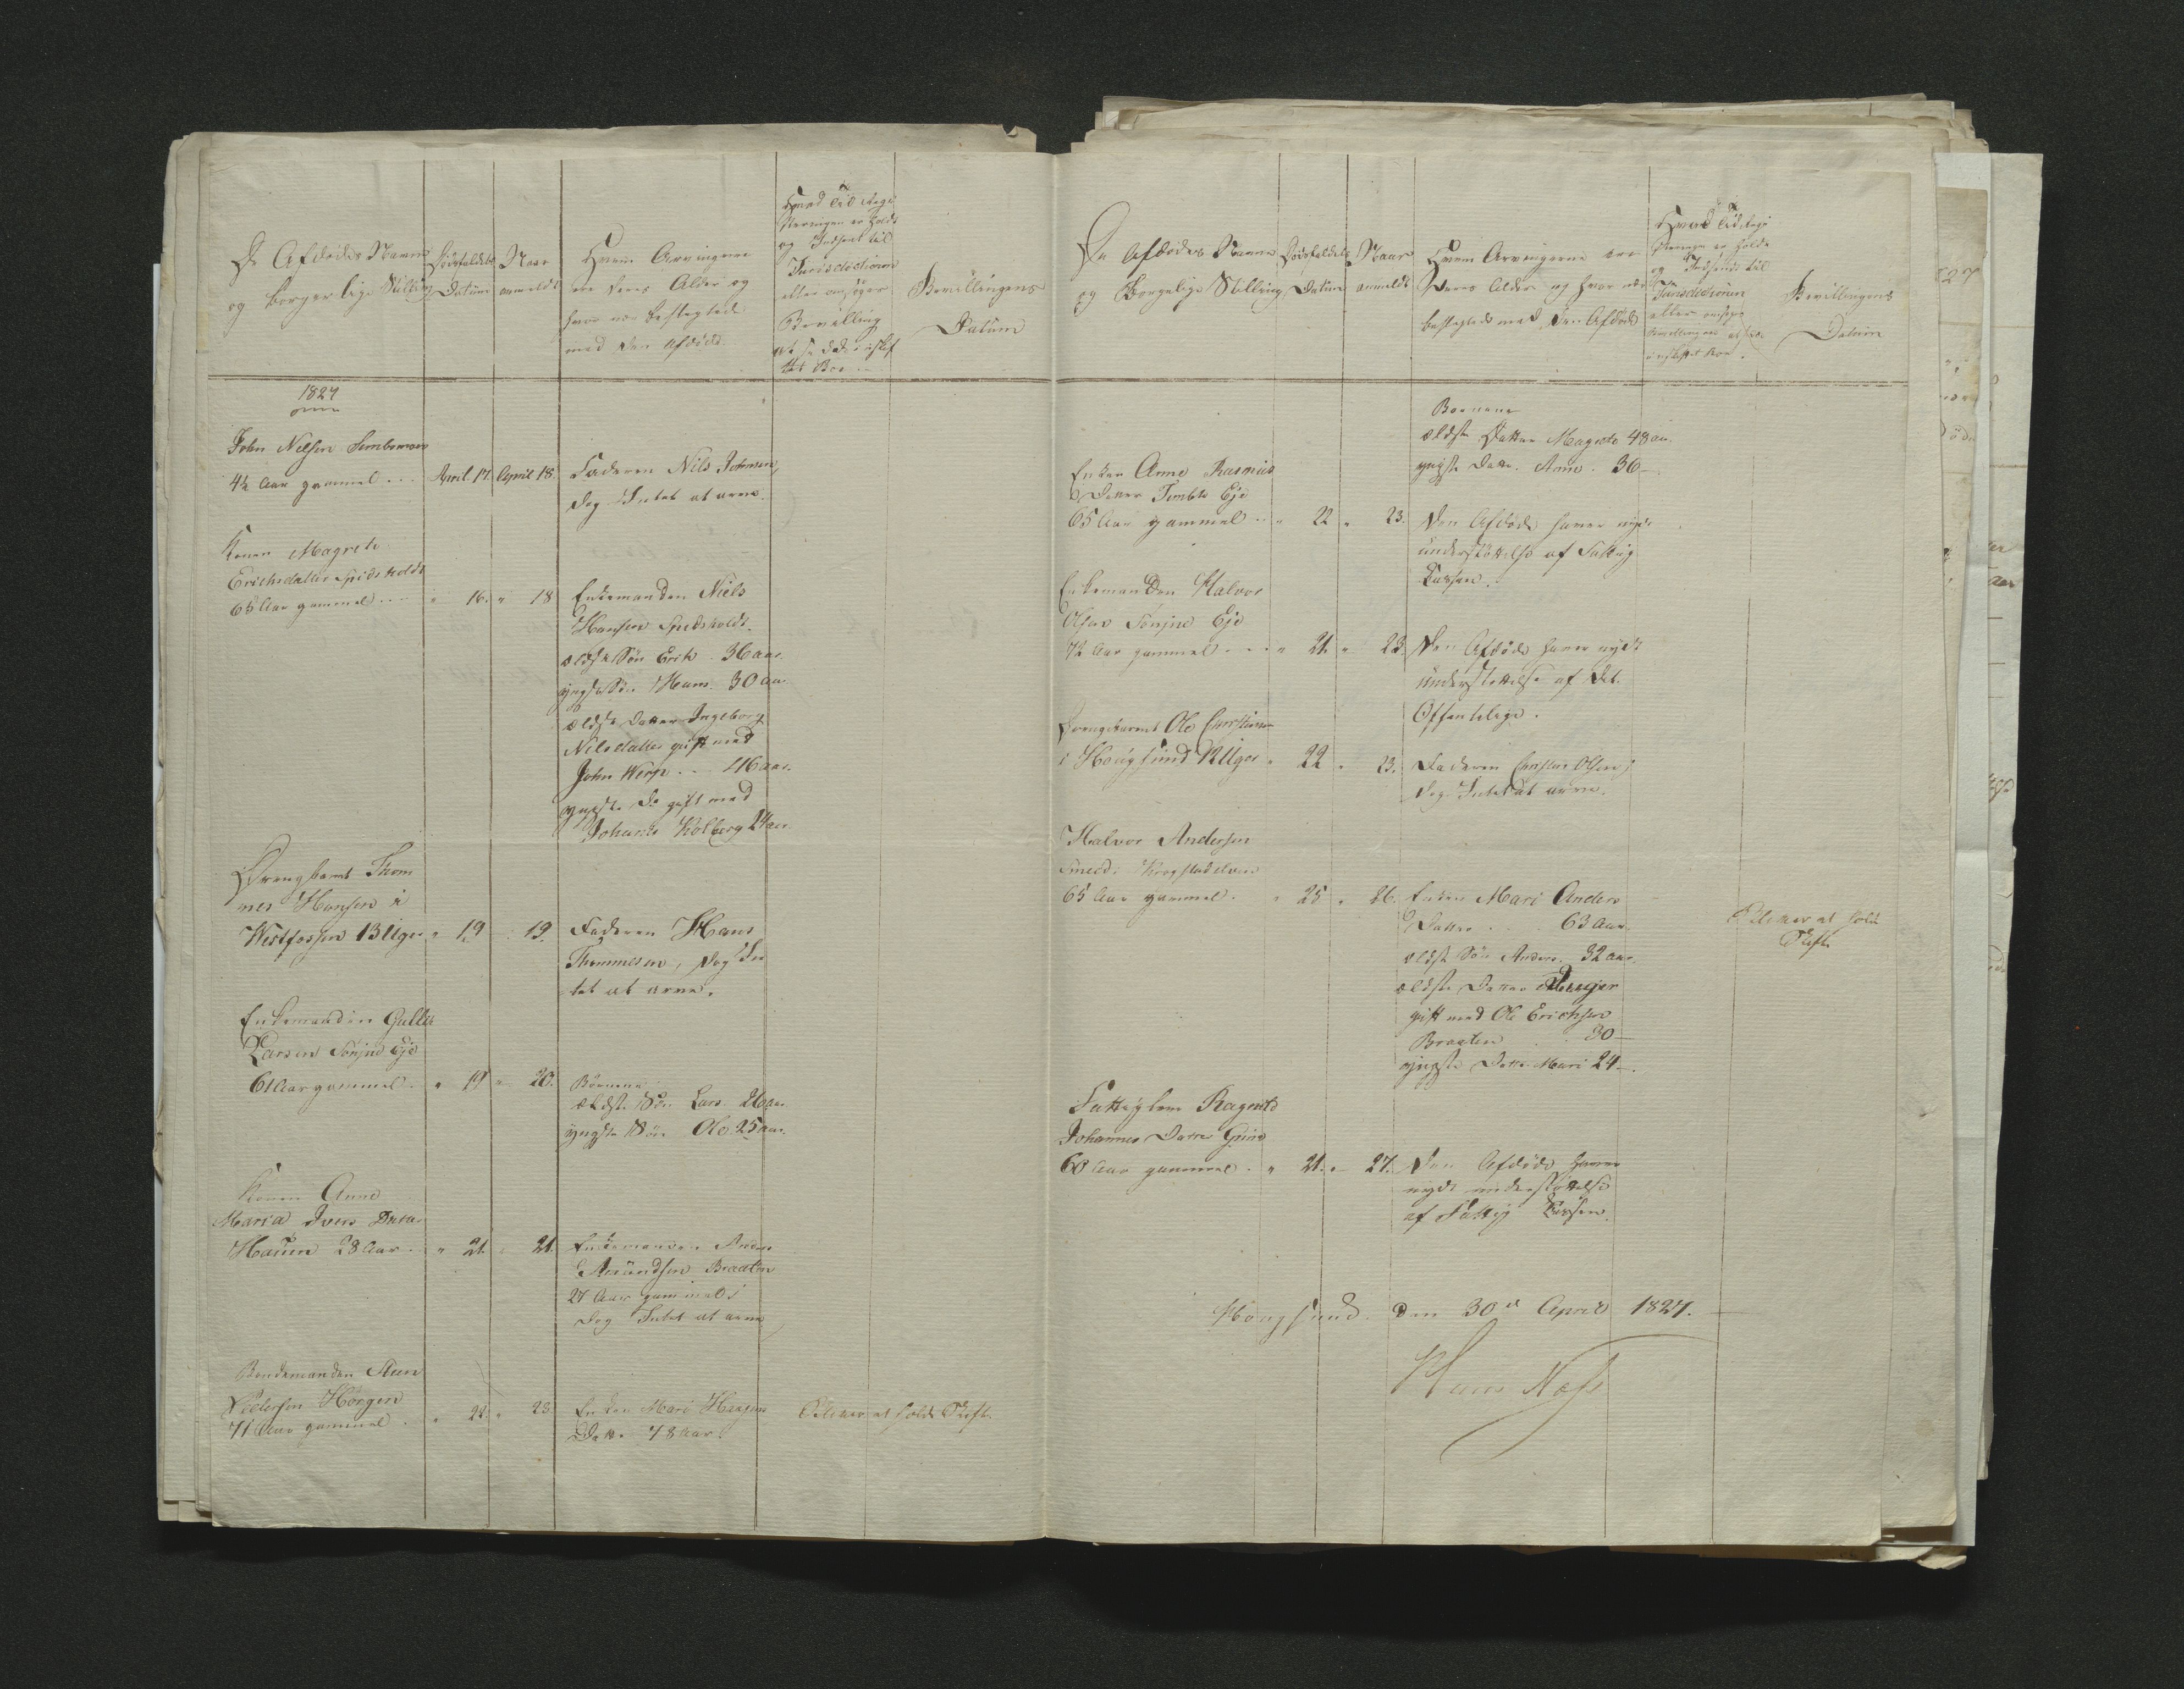 De Afdødes Navne
og borgerlige Stilling
Dødsfaldets
Datum
Naar
anmeldt
Hvem Arvingerne
ere deres Alder og
hvor nær beslegtede
med den Afdøde
Hvad Tid Regi
streringen er holdt
og Indsent til
Jurisdictionen
eller ansøger
Bevilling
at sidde i uskif
tet Boe
Bevillingens
Datum
1827
John Nilsen Semb
4½ Aar gammel . . .
April 17.
April 18.
Faderen Nils Johnsen,
dog Intet at arve.
Konen Magrete
Erichsdatter Spidsholdt
65 Aar gammel . . .
" 16.
" 18
Enkemanden Niels
Hansen Spidsholdt.
ældste Søn Erik . 36 aar.
yngste Søn Hans . 30 aar.
ældste Datter Ingeborg
Nilsdatter gift med
John Werp . . . 46 aar.
yngste Do gift med
Johannes Kolberg 24 aar.
Drengebarnet Thom
mes Hansen i
Westfossen 13 Uger
" 19
" 19.
Faderen Hans
Thommesen, dog In
tet at arve.
Enkemanden Gulle
Larsen Sønjue Eje
61 Aar gammel .
" 19
" 20.
Børnene
ældste Søn Lars 26 aar
yngste Søn Ole 25 aar.
Konen Anne
Maria Ivers Datter
Hauen 28 Aar
" 21.
" 21.
Enkemanden Anders
Amundsen Braaten
27 Aar gammel
dog Intet at arve
Bondemanden Steen
Pedersen Horgen
71 Aar gammel .
" 22.
" 23
Enken Mari Haagen
Datter 78 Aar
Bliver at holde Skifte
De Afdødes Navne
og Borgelige Stilling
Dødsfaldets
Datum
Naar
anmeldt
Hvem Arvingerne ere
Deres Alder og hvor nær
beslegtede med den Afdøde
Hvad Tid Regi
streringen er holdt
og Indsendt til
Jurisdictionen
eller ansøger
Bevillingens
Datum
Børnene
ældste Datter Magrete 48 aar.
yngste Datter Anne . 36 –
Enken Anne Rasmus
Datter Semble Eje
65 Aar gammel
" 22
" 23.
Den Afdøde haver nydt
understøttelse af Fattig
Kassen.
Enkemanden Halvor
Olsen Sønjue Eje
72 Aar gammel . . .
" 21.
" 23.
Den Afdøde haver nydt
understøttelse af det
Offentelige.
Drengebarnet Ole Christian
i Hougsund 12 Uger
" 22
" 23.
Faderen Christen Olsen
dog Intet at arve.
Halvor Andersen
Smed i Krogstadelven
65 Aar gammel .
" 25
" 26.
Enken Mari Anders
Datter . . . 63 Aar.
ældste Søn Anders. 32 aar.
ældste Datter
gift med Ole Erichsen
Braaten . . 30 –
yngste Datter Mari 24 –.
Bliver at holde
Skifte
Fattiglem Ragnild
Johannes Datter
60 Aar gammel .
" 21.
" 27.
Den Afdøde haver
nydt understøttelse
af Fattig Kassen.
Hougsund den 30te April 1827.
Hans Næss